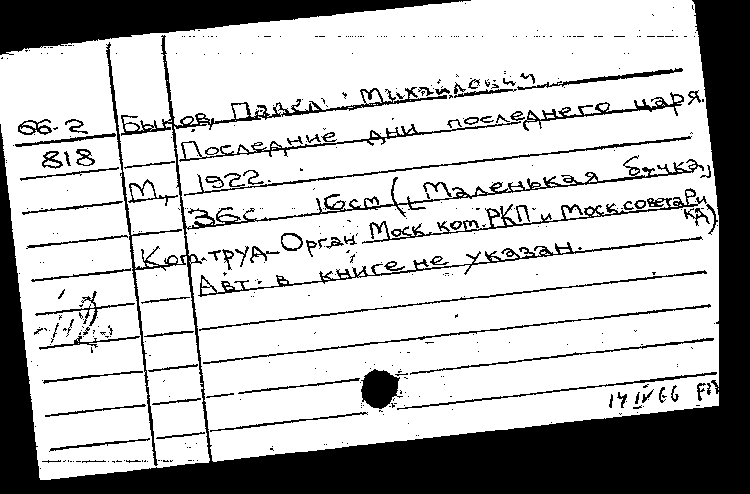 66-2 Быков, Павел Михайлович
818 Последние дни последнего царя.
М., 1922.
36с. 16см (Маленькая
Ком. труд-Орган Моск. ком. РКП и Моск. совета Р и КД)
Авт. в книге не указан.
14 IV 66